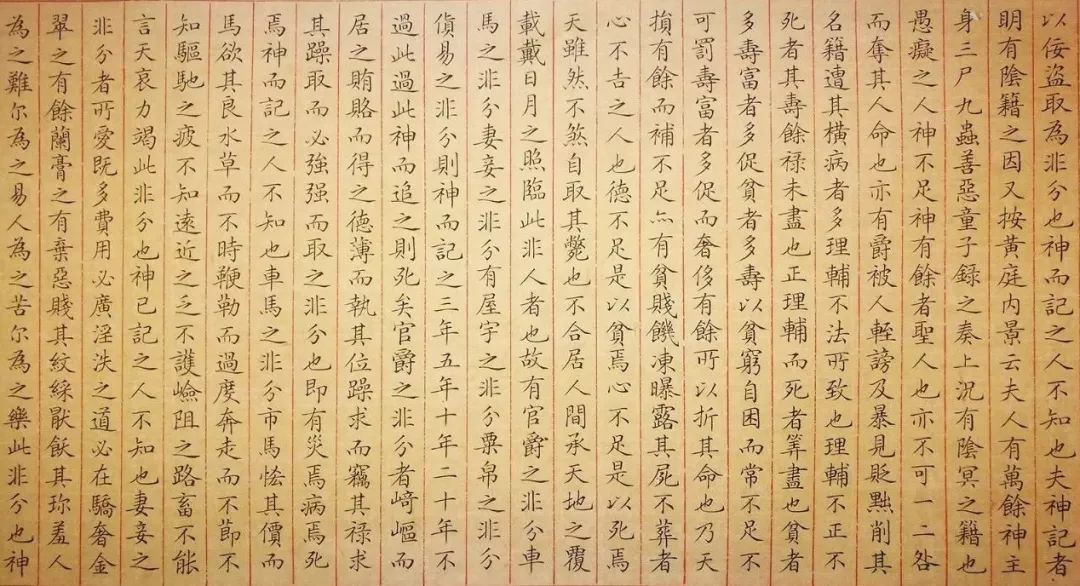 以佞盜取為非分也神而記之人不知也夫神記者
明有陰籍之因又按黃庭內景云夫人有萬餘神主
身三尸九蟲善惡童子録之奏上況有陰冥之籍也
愚癡之人神不足神有餘者聖人也亦不可一二咎
而奪其人命也亦有爵被人輕謗及暴見貶黜削其
名籍遭其橫病者多理輔不法所致也理輔不正不
死者其壽餘禄未盡也正理輔而死者筭盡也貧者
多壽富者多促貧者多壽以貧窮自困而常不足不
可罰壽富者多促而奢侈有餘所以折其命也乃天
損有餘而補不足亦有貧賤饑凍曝露其屍不葬者
心不吉之人也德不足是以貧焉心不足是以死焉
天雖然不煞自取其斃也不合居人間承天地之覆
載戴日月之照臨此非人者也故有官爵之非分車
馬之非分妻妾之非分有屋宇之非分粟帛之非分
貨易之非分則神而記之三年五年十年二十年不
過此過此神而追之則死矣官爵之非分者崎嶇而
居之賄賂而得之德薄而執其位躁求而竊其禄求
其躁取而必強强而取之非分也即有災焉病焉死
焉神而記之人不知也車馬之非分市馬恡其價而
馬欲其良水草而不時鞭勒而過度奔走而不節不
知驅馳之疲不知遠近之乏不護嶮阻之路畜不能
言天哀力竭此非分也神已記之人不知也妻妾之
非分者所愛既多費用必廣淫泆之道必在驕奢金
翠之有餘蘭膏之有棄惡賤其紋綵猒飫其珎羞人
為之難尔為之易人為之苦尔為之樂此非分也神